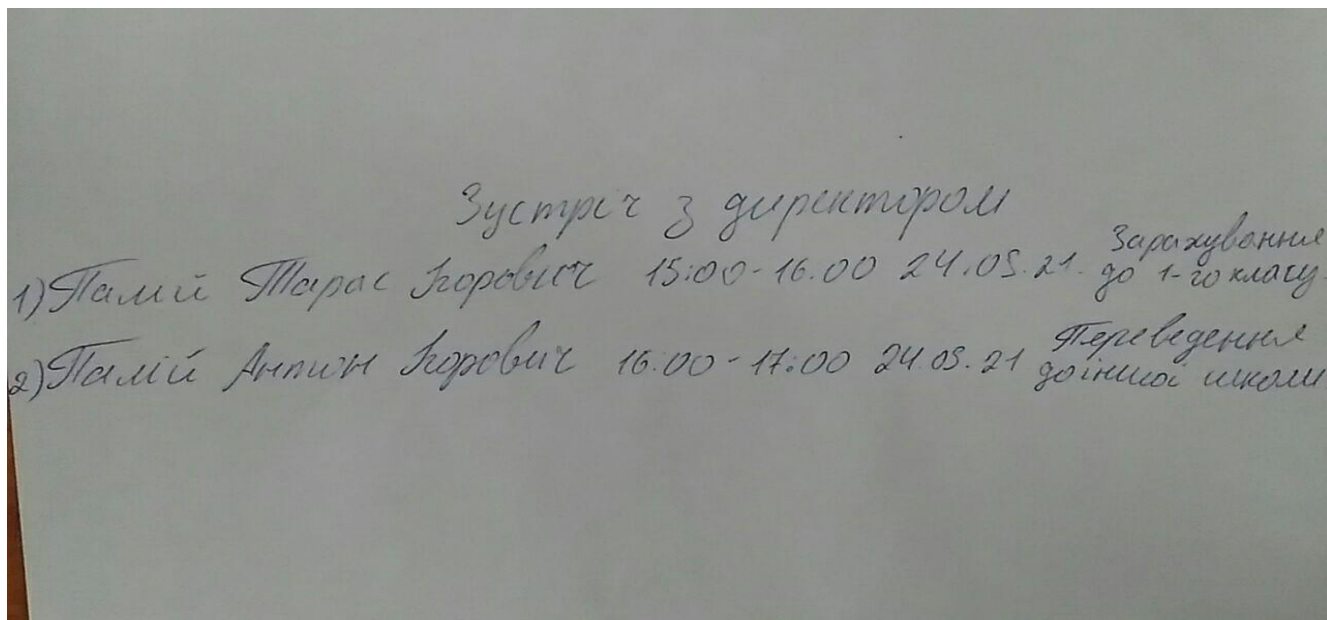 Зустріч з директором
1) Палій Тарас Ігорович 15:00-16.00 24.05.21. Зарахування
до 1-го класу
2) Палій Антон Ігорович 16.00-17:00 24.05.21 Переведення
до іншої школи